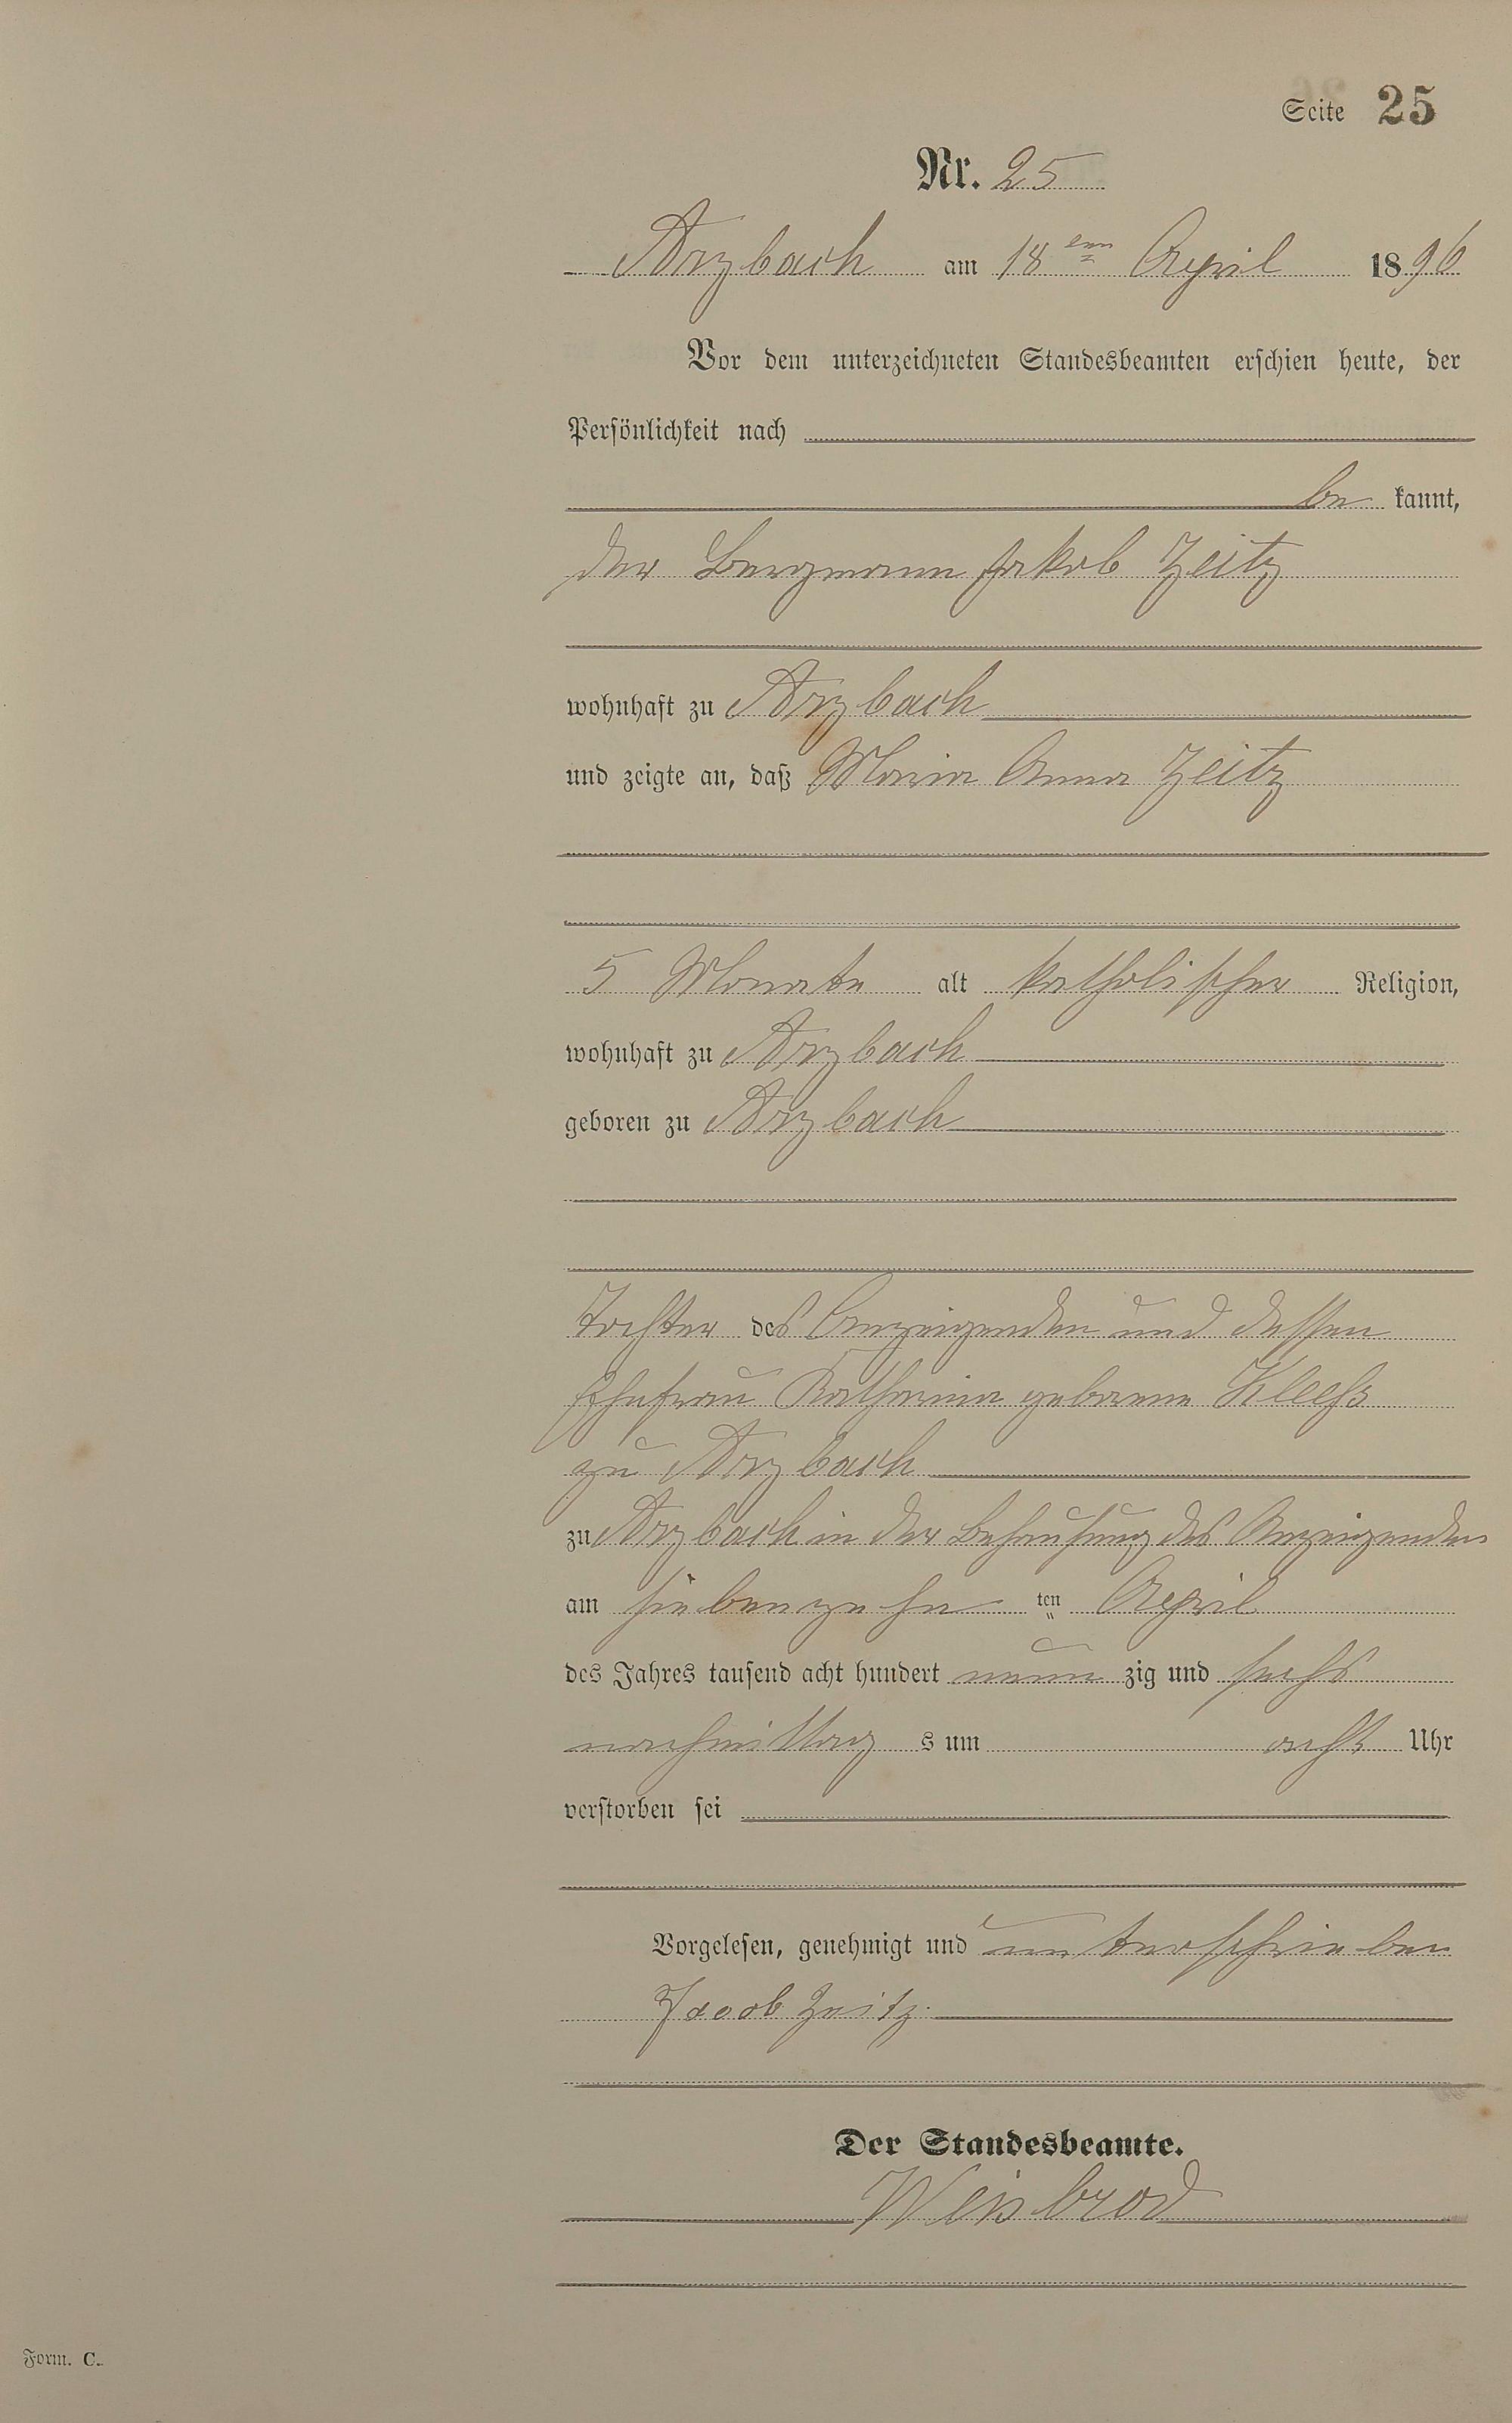 Seite 25
Nr. 25
Arzbach am 18ten April 1896
Vor dem unterzeichneten Standesbeamten erschien heute, der
Persönlichkeit nach
be kannt,
der Bergmann Jakob Zeitz
wohnhaft zu Arzbach
und zeigte an, daß Maria Anna Zeitz
5 Monate alt katholischer Religion,
wohnhaft zu Arzbach
geboren zu Arzbach
Tochter des Anzeigenden und dessen
Ehefrau Katharina geborene Kleehs
zu Arzbach
zu Arzbach in der Behausung des Anzeigenden
am siebenzehn ten April
des Jahres tausend acht hundert neun zig und sechs
nachmittag s um acht Uhr
verstorben sei
Vorgelesen, genehmigt und unterschrieben
Jacob Zeitz.
Der Standesbeamte.
Weisbrod
Form. C.